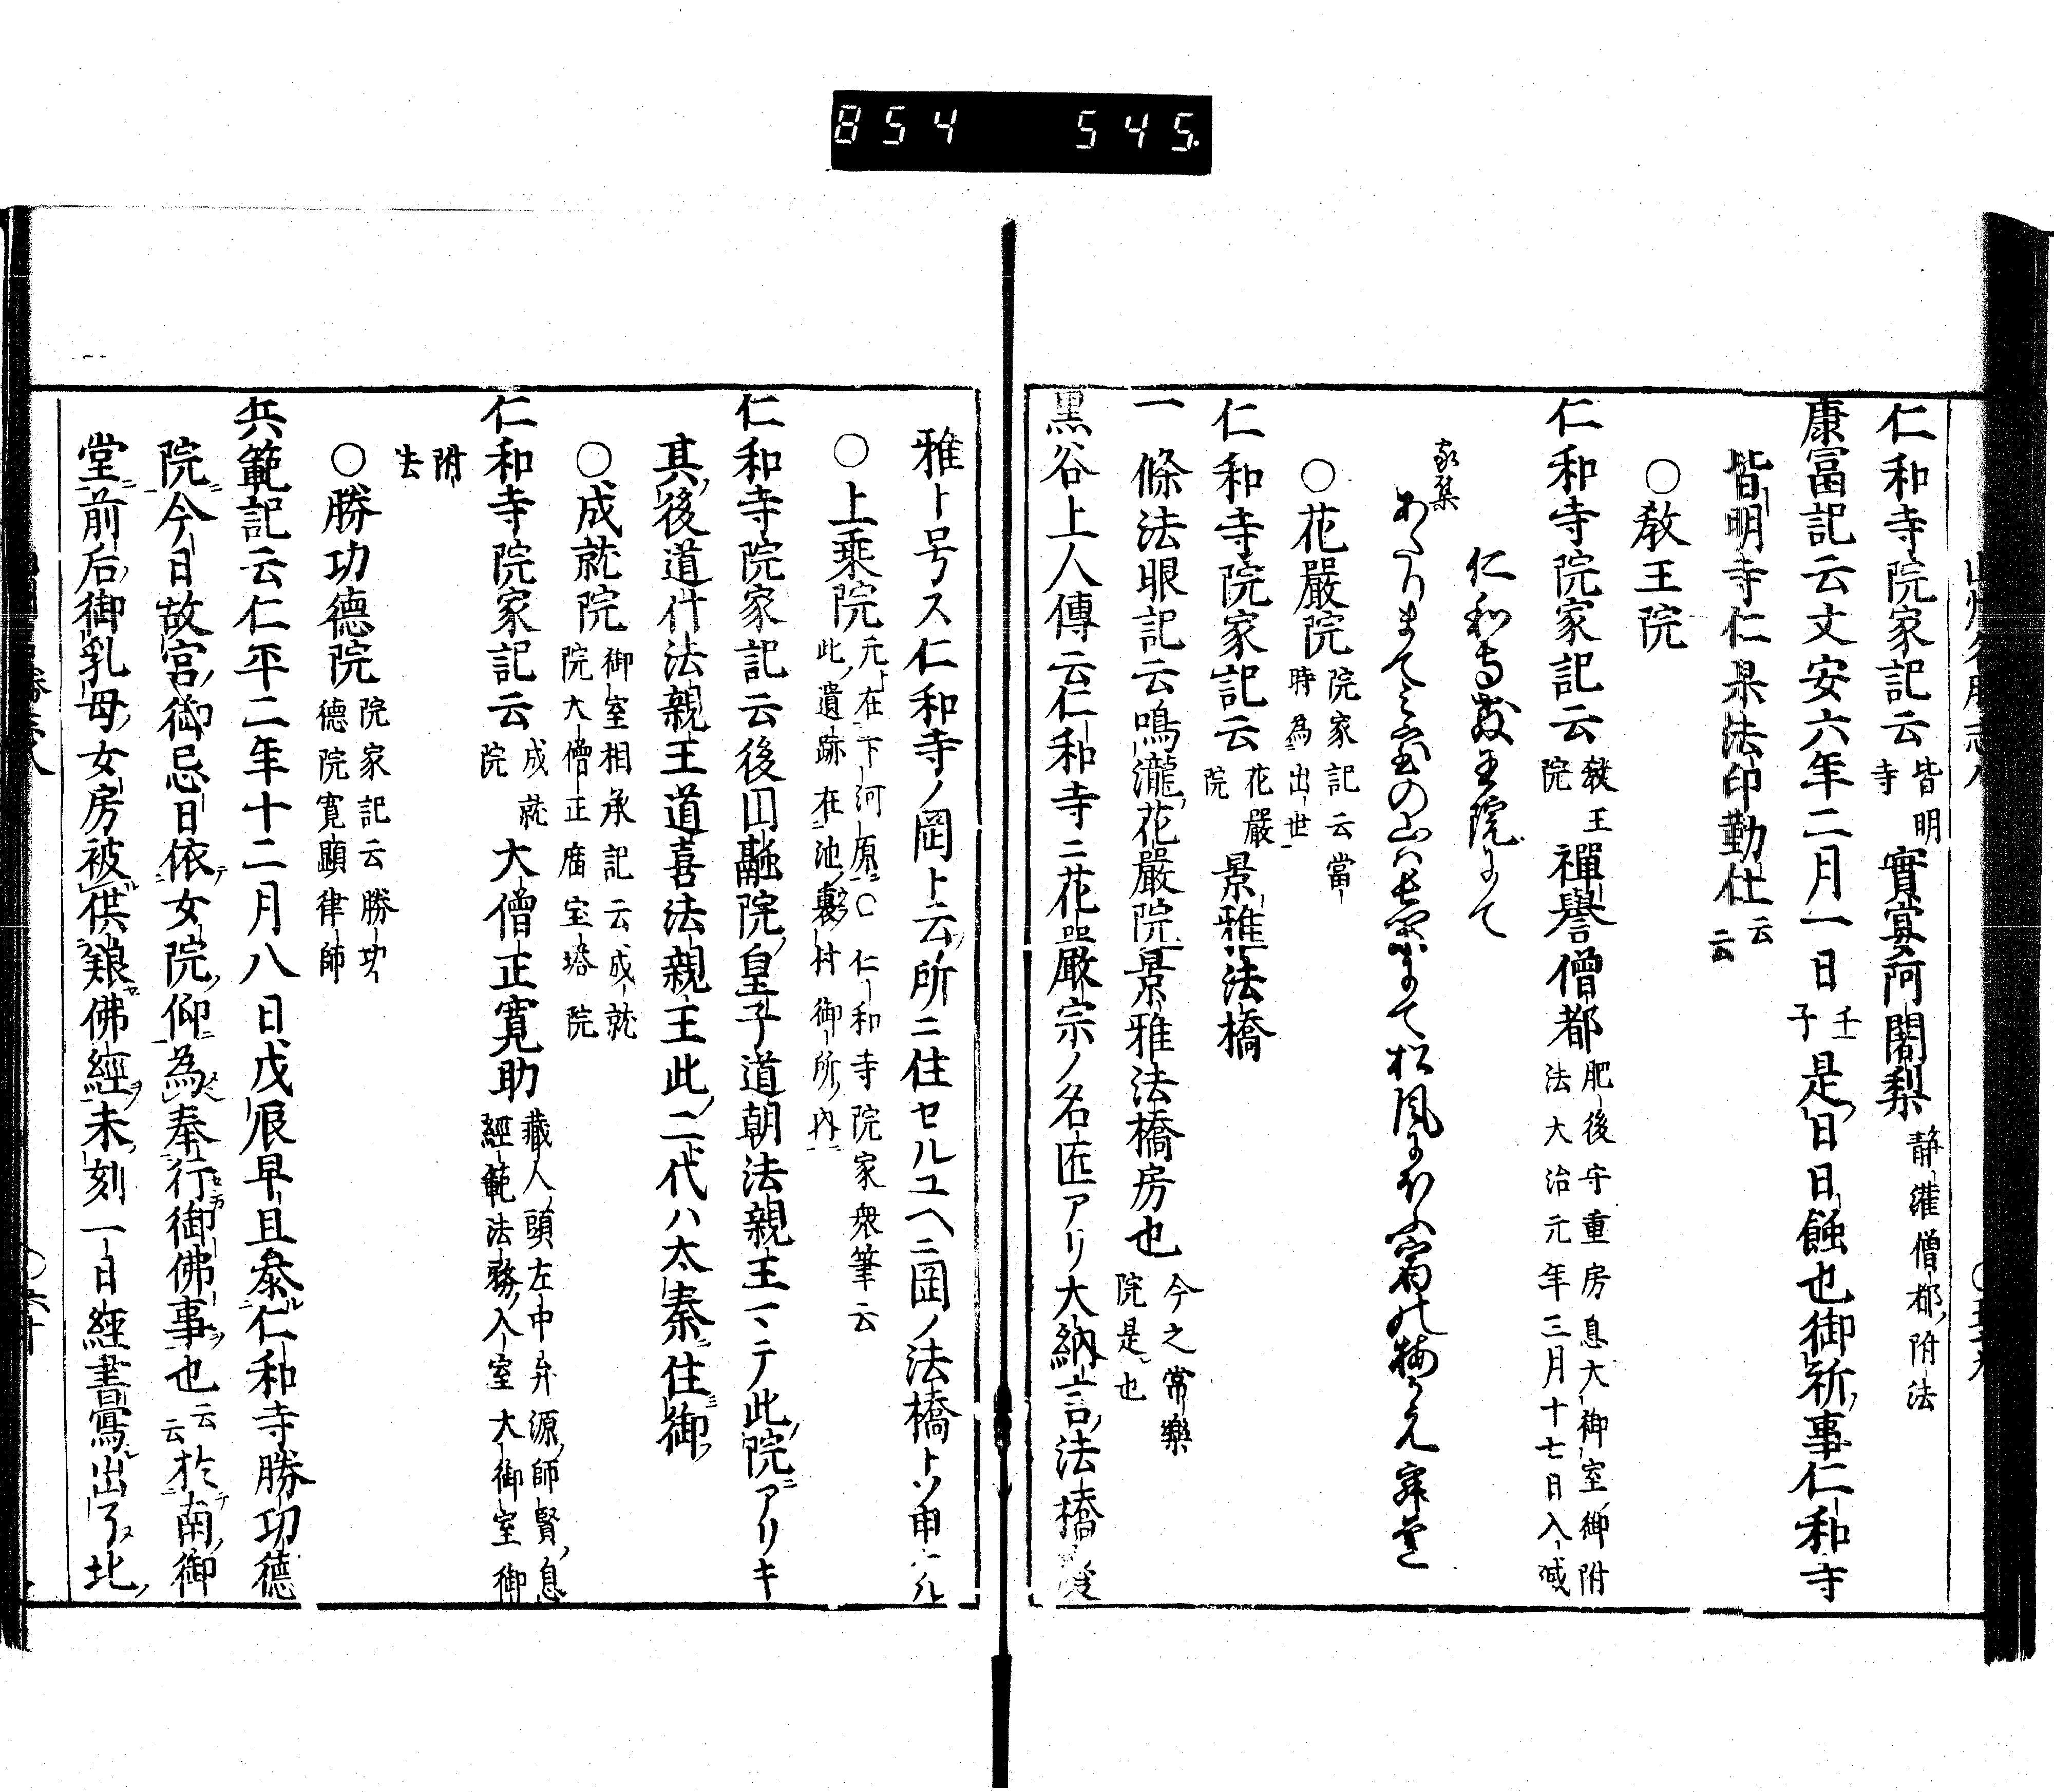 854 545.
仁和寺院家記云皆明寺實寞阿闍梨静灌僧都附法
康冨記云文安六年二月一日壬子是日日蝕也御祈事仁和寺
皆明寺仁杲法印勤仕云云
○教王院
仁和寺院家記云教王院禪譽僧都肥後守重房息大御室御附法大治元年三月十七日入滅
仁和寺教王院にて
家集
○花嚴院院家記云當時為出世
仁和寺院家記云花嚴院景雅法橋
一條法眼記云鳴瀧花嚴院景雅法橋房也今之常樂院是也
黒谷上人傳云仁和寺ニ花嚴宗ノ名匠アリ大納言法橋慶
雅ト号ス仁和寺ノ岡ト云所ニ住セルユヘニ岡ノ法橋トソ申ケル
○上乗院元在下河原○仁和寺院家衆筆云此遺跡在池裏村御所内
仁和寺院家記云後円融院皇子道朝法親王マテ此院アリキ
其後道什法親王道喜法親王此二代ハ太秦住御
○成就院御室相承記云成就院大僧正寛宝塔院
仁和寺院家記云成就院大僧正寛助藏人頭左中弁源師賢息經範法務入室大御室御
附法
○勝功德院院家記云勝功德院寛顕律師
兵範記云仁平二年十二月八日戊辰早旦參仁和寺勝功德
院今日故宮御忌日依女院仰為奉行御佛事也云云於南御
堂前后御乳母女房被供娘佛經未刻一日經書寫出了北